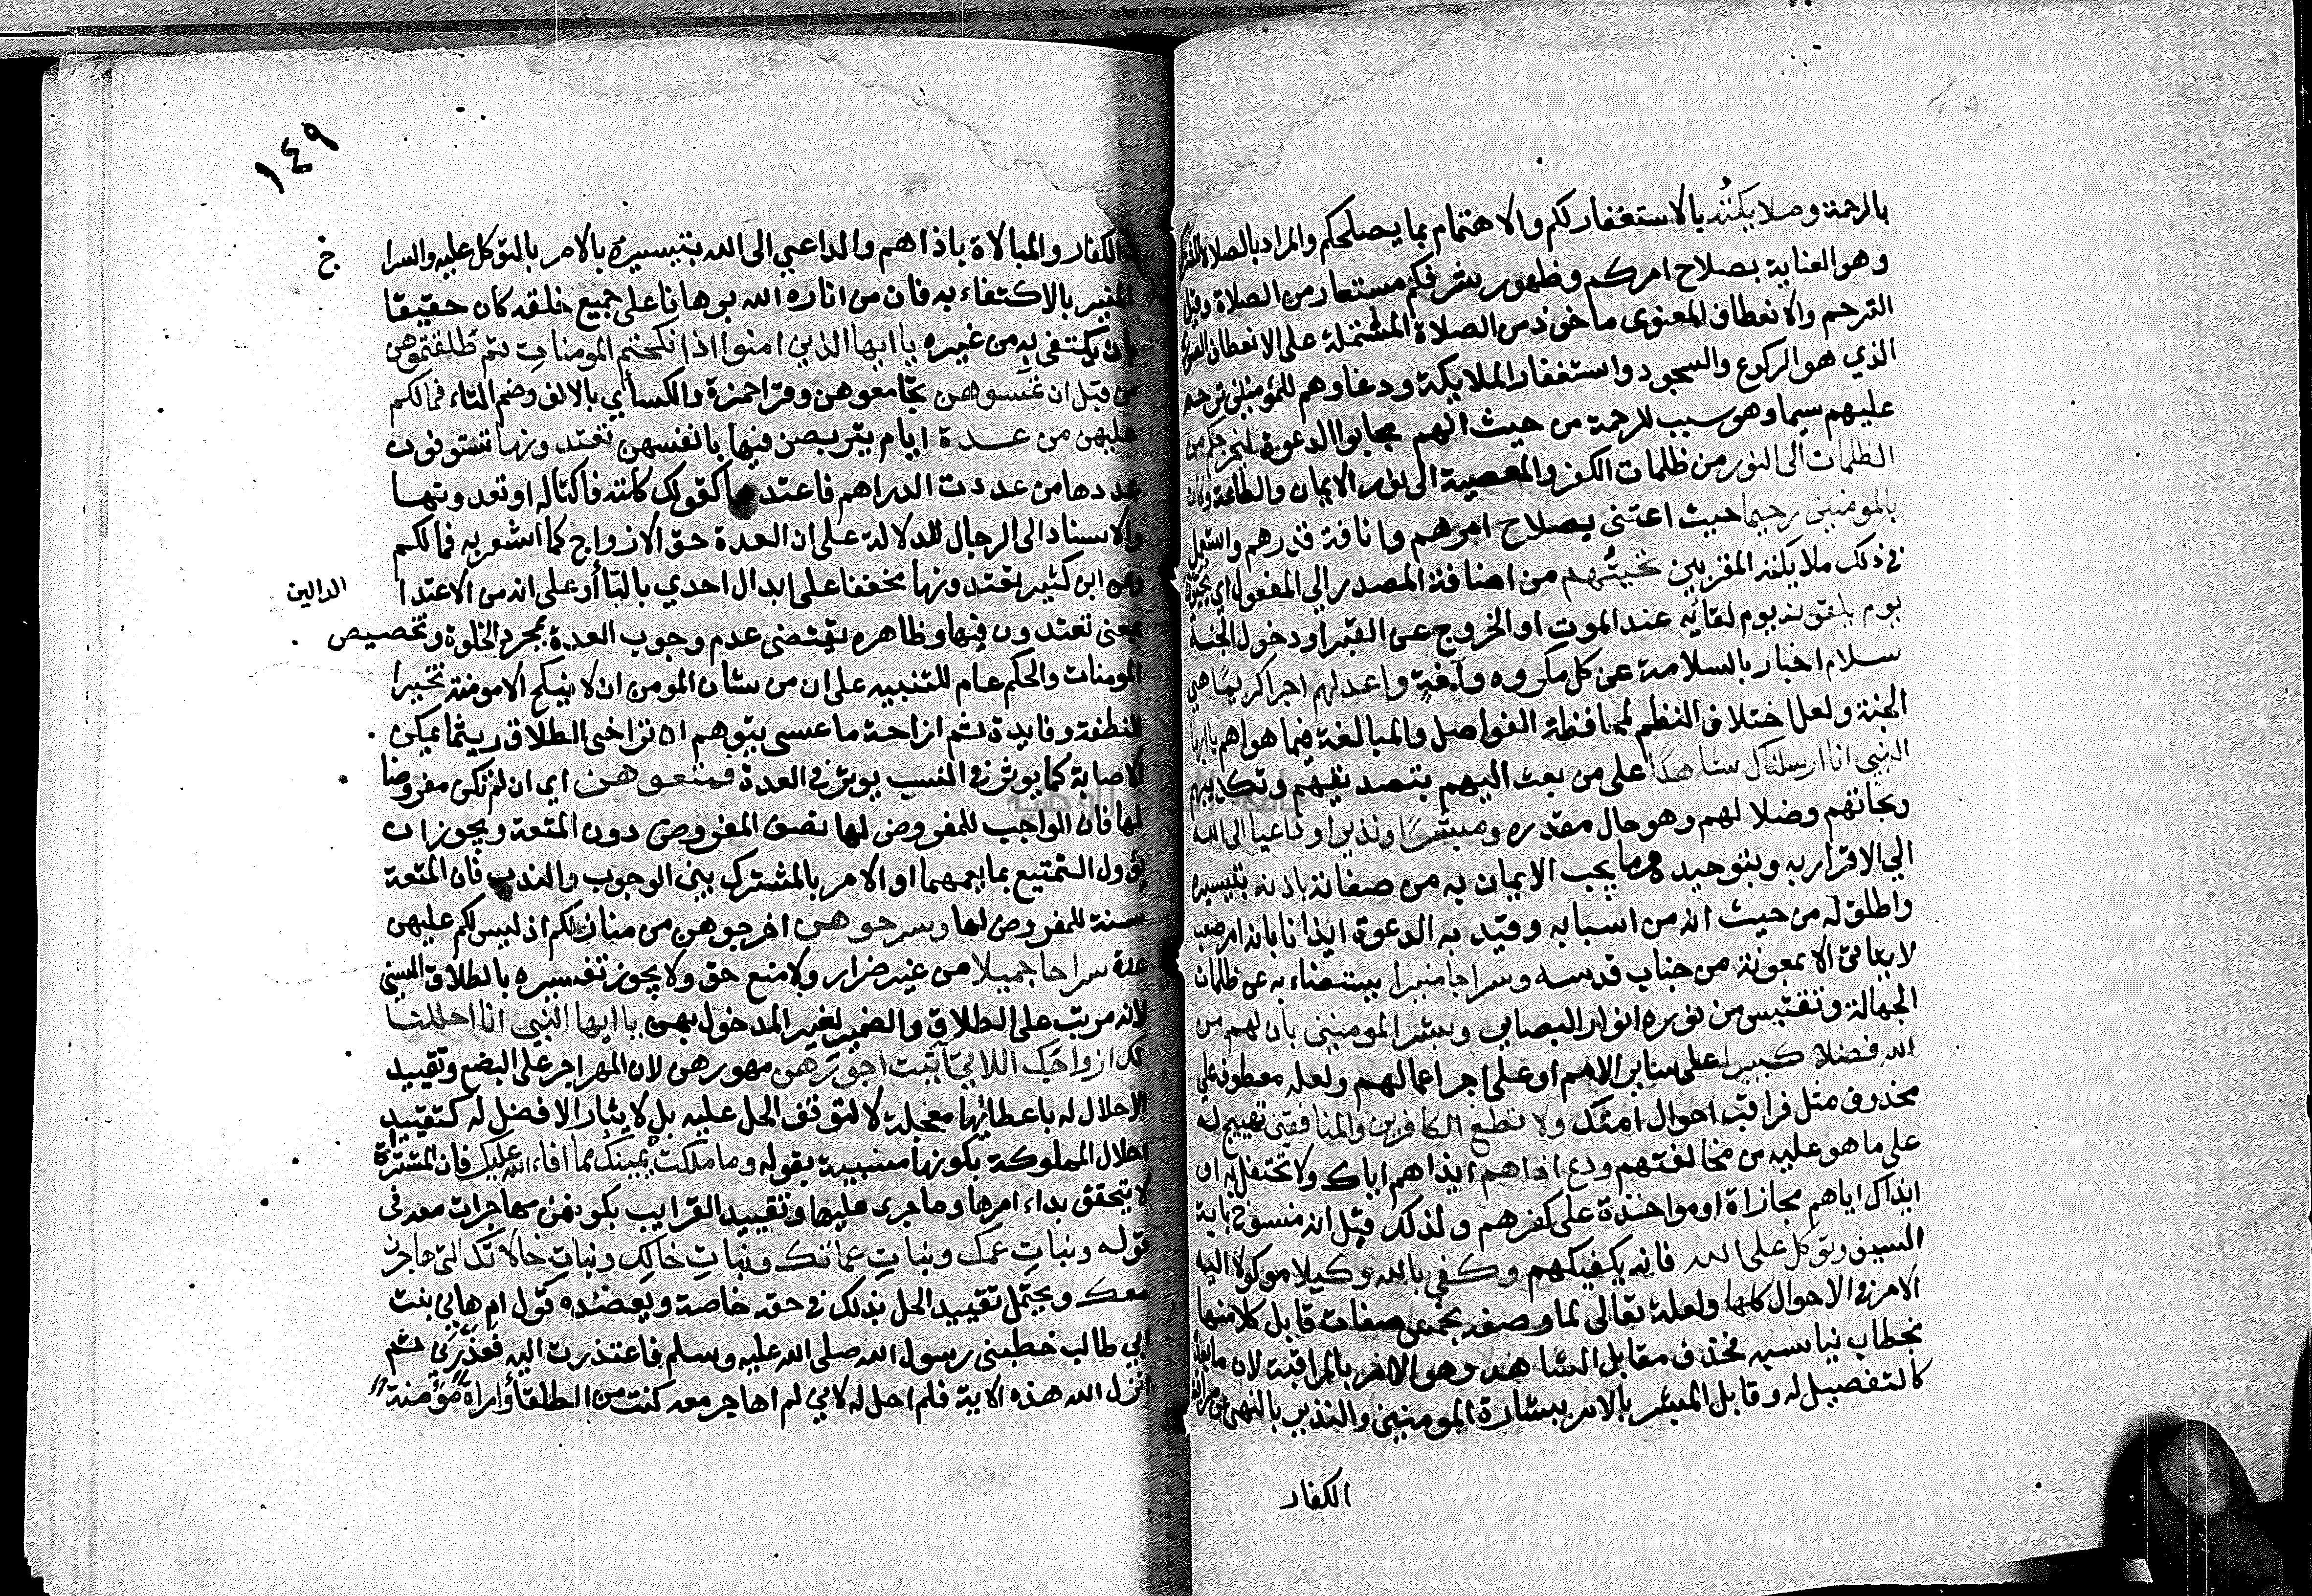 بالرحمة وملايكته بالاستغفار لكم والاهتمام بما يصلحكم والمراد بالصلاة المشترك
وهو العناية بصلاح امركم وظهور شرفكم مستعار من الصلاة وقيل
الترحم والانعطاف المعنوى ماخوذ من الصلاة المشتملة على الانعطاف الصورى
الذي هو الركوع والسجود واستغفار الملايكة ودعاوهم للمؤمنين ترحم
عليهم سيما وهو سبب للرحمة من حيث انهم مجابوا الدعوة ليخرجكم من
الظلمات الى النور من ظلمات الكفر والمعصية الى نور الايمان والطاعة وكان
بالمومنين رحيما حيث اعتنى بصلاح امرهم وانافة قدرهم واستعمل
في ذلك ملايكته المقربين تحيتُهم من اضافة المصدر الي المفعول اي يحيون
يوم يلقونه يوم لقائه عند الموت او الخروج عن القبر او دخول الجنة
سلام اخبار بالسلامة عن كل مكروه وآفة واعد لهم اجرا كريمًا هي
الجنة ولعل اختلاف النظم لمحافظة الفواصل والمبالغة فيما هو اهم يا ايها
النبي انا ارسلناك شاهدًا على من بعث اليهم بتصديقهم وتكذيبهم
ونجاتهم وضلالهم وهو حال مقدره ومبشرًا ونذيرا وداعيا الى الله
الي الاقرار به وبتوحيده وما يجب الايمان به من صفاته باذنه بتيسيره
واطلق له من حيث انه من اسبابه وقيد به الدعوة ايذانا بانه امر صعب
لا يتاتى الا بمعونة من جناب قدسه وسراجا منيرا يستضاء به عن ظلمات
الجهالة وتقتبس من نوره انوار البصاير وبشر المومنين بان لهم من
الله فضلا كبيرا على ساير الامم او على اجر اعمالهم ولعله معطوف علي
محذوف مثل فراقب احوال امتك ولا تطع الكافرين والمنافقين تهييج له
على ما هو عليه من مخالفتهم ودع اذاهم ايذاهم اياك ولا تحتفل به او
ايذاك اياهم مجازاة او مواخذة على كفرهم ولذلك قيل انه منسوخ باية
السيف وتوكل على الله فانه يكفيكهم وكفي بالله وكيلا موكولا اليه
الامر في الاحوال كلها ولعله تعالى لما وصفه بخمس صفات قابل كلا منها
بخطاب يناسبه فحذف مقابل الشاهد وهو الامر بالمراقبة لان ما بعده
كالتفصيل له وقابل المبشر بالامر ببشارة المومنين والنذير بالنهي عن مراقبة
الكفار
١٤٩
الكفار والمبالاة باذاهم والداعي الى الله بتيسيره بالامر بالتوكل عليه والسرا ج
المنير بالاكتفاء به فان من اناره الله برهانا على جميع خلقه كان حقيقا
بان يكتفى به من غيره يا ايها الذين امنوا اذا نكحتم المومنات ثم طلقتموهن
من قبل ان تمسوهن تجامعوهن وقرا حمزة والكسائي بالالف وضم التاء فمالكم
عليهن من عدة ايام يتربصن فيها بانفسهن تعتدونها تستوفون
عددها من عددت الدراهم فاعتدها كقولك كلته فاكتاله او تعدونها
والاسناد الى الرجال للدلالة على ان العدة حق الازواج كما اشعر به فمالكم
وعن ابن كثير تعتدونها مخففا على ابدال احدي الدالين بالتا او على انه من الاعتدا
بمعنى تعتدون فيها وظاهره يقتضى عدم وجوب العدة بمجرد الخلوة وتخصيص
المومنات والحكم عام للتنبيه على ان من شان المومن ان لا ينكح الا مومنة تخييرا
للنطفة وفايدة ثم ازاحة ما عسى يتوهم ان تراخى الطلاق ريثما يمكن
الاصابة كما يوثر في النسب يوثر في العدة فمتعوهن اي ان لم تكن مفروضا
لها فان الواجب للمفروض لها نصف المفروض دون المتعة ويجوز ان
يؤول التمتيع بما يعمهما او الامر بالمشترك بين الوجوب والندب فان المتعة
سنة للمفروض لها وسرحوهن اخرجوهن من منازلكم اذ ليس لكم عليهن
عدة سراحا جميلا من غير ضرار ولا منع حق ولا يجوز تفسيره بالطلاق السنى
لانه مرتب على الطلاق والضمير لغير المدخول بهن يا ايها النبي انا احللنا
لك ازواجك اللاتي آتيت اجورهن مهورهن لان المهر اجر على البضع وتقييد
الاحلال له باعطائها معجلة لا لتوقف الحل عليه بل لايثار الافضل له كتقييد
احلال المملوكة بكونها مسبية بقوله وما ملكت يمينك مما افاء الله عليك فان المشتراة
لا يتحقق بداء امرها وما جرى عليها وتقييد القرايب بكونهن مهاجرات معه فى
قوله وبناتِ عمك وبناتِ عماتك وبناتِ خالِك وبناتِ خالاتك التى هاجرن
معك ويحتمل تقييد الحل بذلك في حقه خاصة ويعضده قول ام هاني بنت
ابي طالب خطبنى رسول الله صلى الله عليه وسلم فاعتذرت اليه فعذرني ثم
انزل الله هذه الاية فلم احل له لاني لم اهاجر معه كنت من الطلقا وامراة مؤمنة